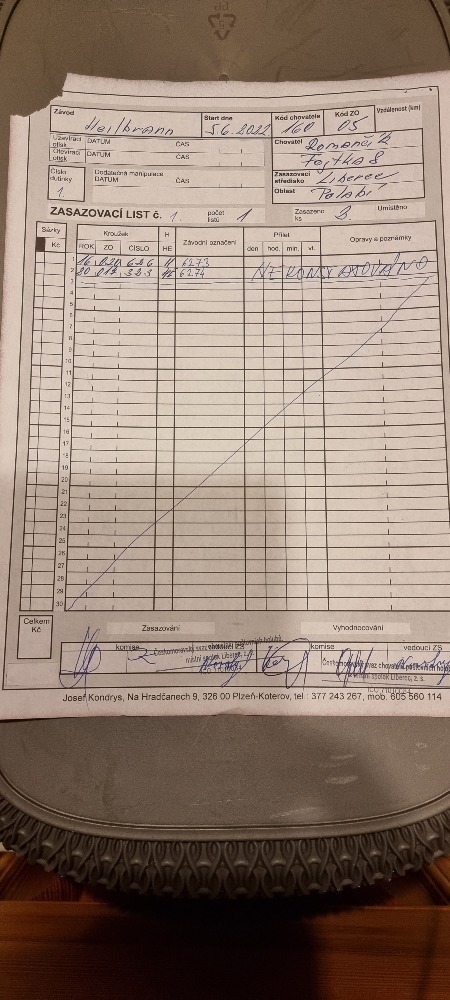 Závod Heilbronn Start dne 5.6.2022 Kód chovatele 160 Kód ZO 05 Vzdálenost (km)
Uzavírací otisk DATUM ČAS
Otevírací otisk DATUM ČAS
Chovatel Romančík
Fojtka 8
Číslo dutinky 1 Dodatečná manipulace DATUM ČAS
Zasazovací středisko Liberec
Oblast Polabí
ZASAZOVACÍ LIST č. 1 počet listů 1 Zasazeno ks 2 Umístěno
Sázky Kroužek H Závodní označení Přílet Opravy a poznámky
Kč ROK ZO ČÍSLO HE den hod. min. vt.
1 16 020 626 H 6273 NEKONSTATOVÁNO
2 20 019 323 6274
3
4
5
6
7
8
9
10
11
12
13
14
15
16
17
18
19
20
21
22
23
24
25
26
27
28
29
30
Celkem Kč Zasazování Vyhodnocování
komise vedoucí ZS komise vedoucí ZS
místní spolek Liberec, z. s.
Josef Kondrys, Na Hradčanech 9, 326 00 Plzeň-Koterov, tel.: 377 243 267, mob. 605 560 114